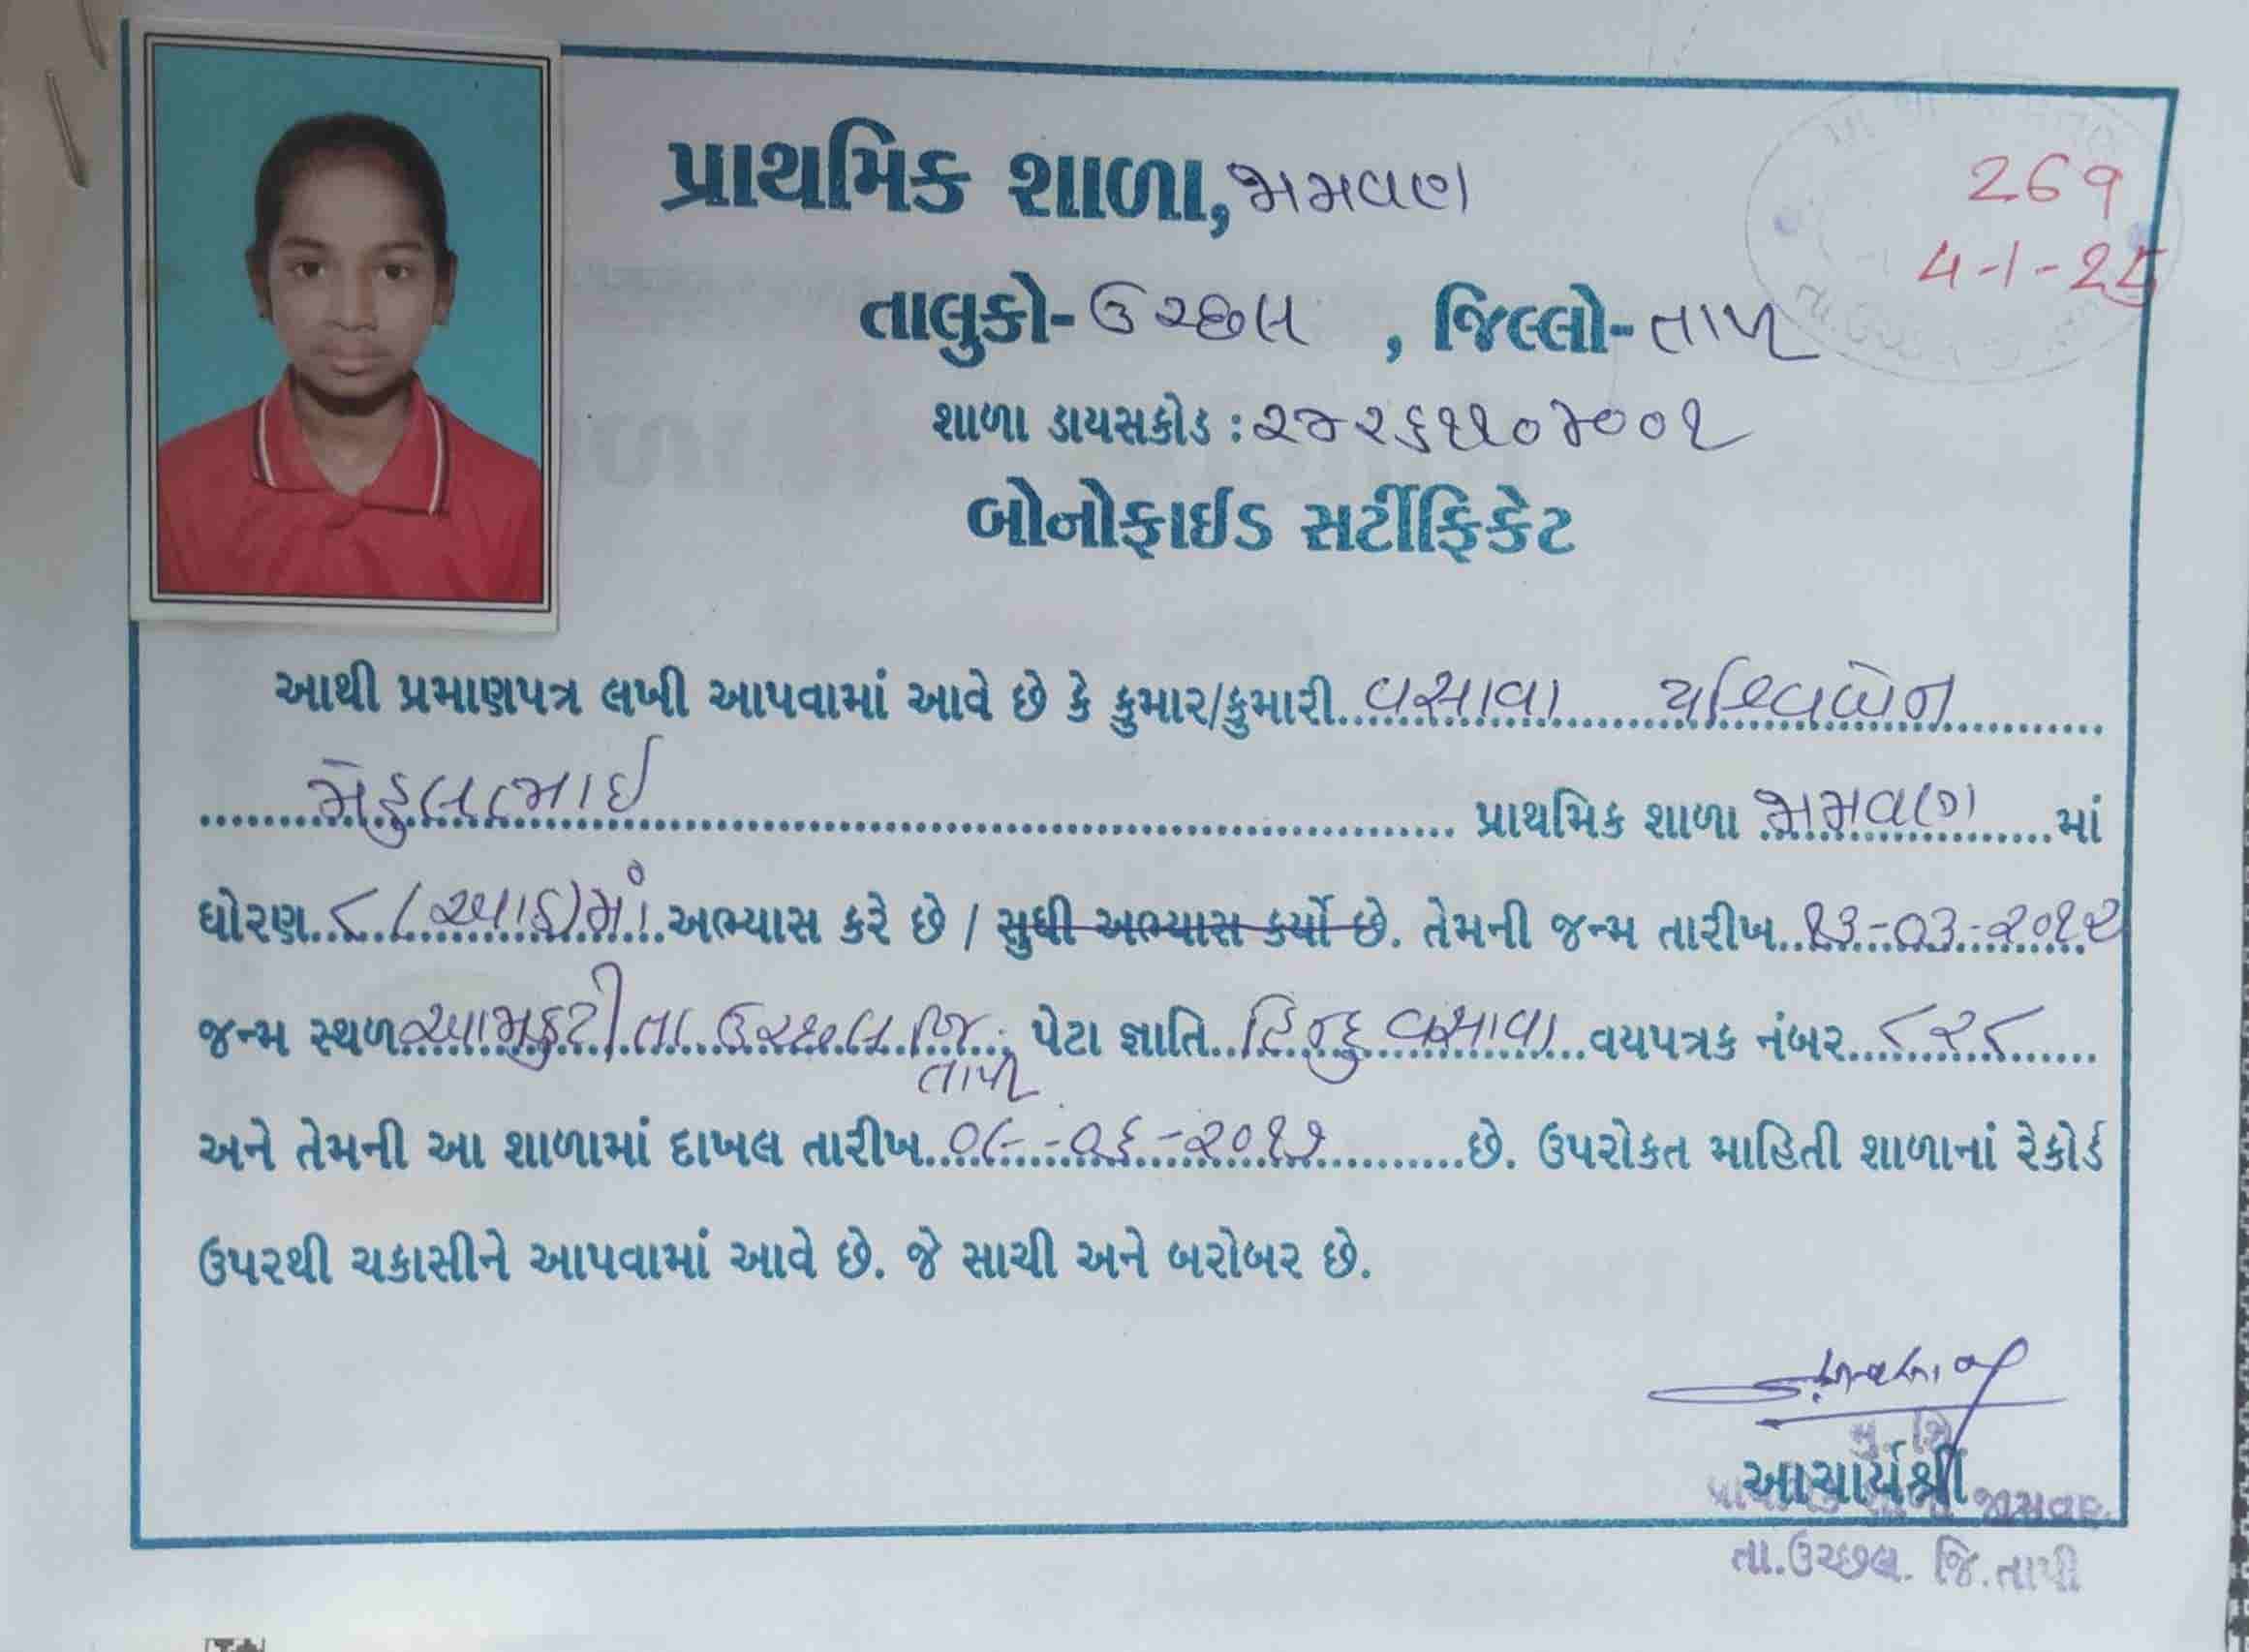 પ્રાથમિક શાળા, જામવણ
269
4-1-25
તાલુકો- ઉચ્છલ , જિલ્લો- તાપી
શાળા ડાયસકોડ : ૨૪૨૬૧૧૦૪૦૦૧
બોનોફાઈડ સર્ટીફિકેટ
આથી પ્રમાણપત્ર લખી આપવામાં આવે છે કે કુમાર/કુમારી વસાવા
મેહુલભાઈ પ્રાથમિક શાળા જામવણ માં
ધોરણ ૮ (આઠ)માં અભ્યાસ કરે છે / સુધી અભ્યાસ કર્યો છે. તેમની જન્મ તારીખ ૧૩-૦૩-૨૦૧૨
જન્મ સ્થળ આમકુટી તા. ઉચ્છલ જિ. પેટા જ્ઞાતિ હિન્દુ વસાવા વયપત્રક નંબર ૮૨૮
તાપી
અને તેમની આ શાળામાં દાખલ તારીખ ૦૮-૦૬-૨૦૧૭ છે. ઉપરોકત માહિતી શાળાનાં રેકોર્ડ
ઉપરથી ચકાસીને આપવામાં આવે છે. જે સાચી અને બરોબર છે.
મુ. શિ
આચાર્યશ્રી
જામવણ
તા.ઉચ્છલ. જિ.તાપી